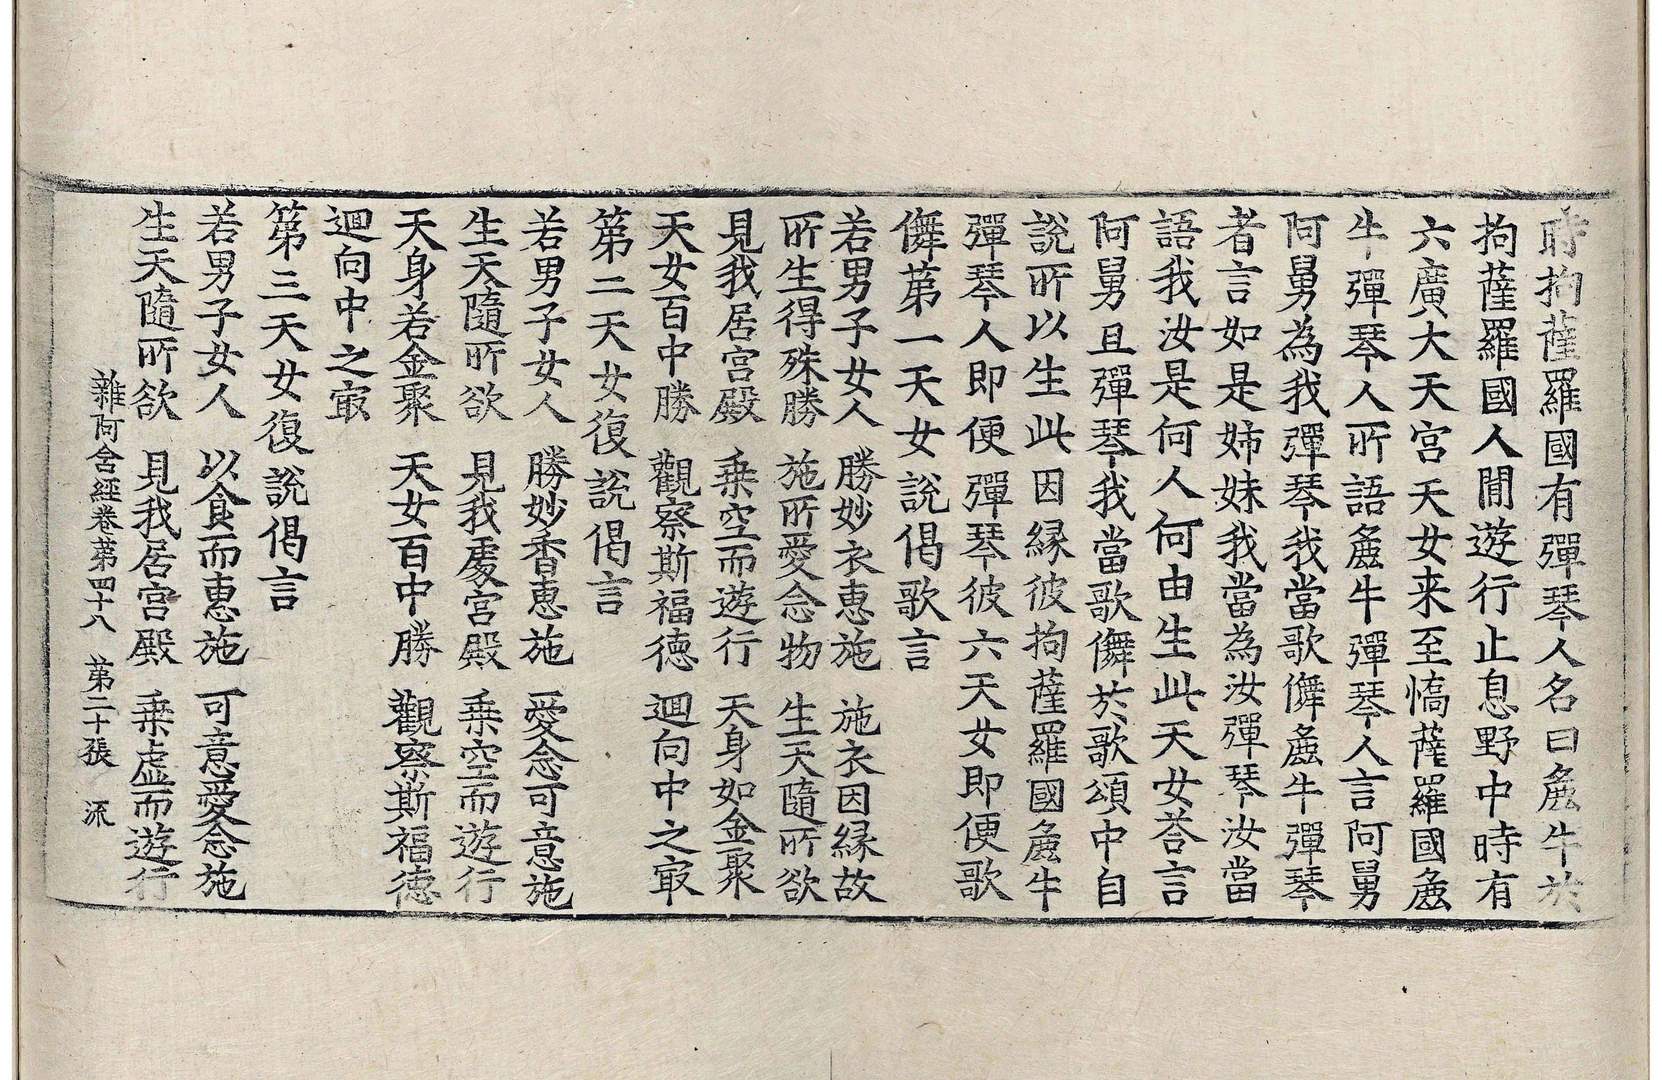 時拘薩羅國有彈琴人名曰麁牛於
拘薩羅國人間遊行止息野中時有
六廣大天宮天女来至憍薩羅國麁
牛彈琴人所語麁牛彈琴人言阿舅
阿舅為我彈琴我當歌儛麁牛彈琴
者言如是姊妹我當為汝彈琴汝當
語我汝是何人何由生此天女荅言
阿舅且彈琴我當歌儛於歌頌中自
說所以生此因縁彼拘薩羅國麁牛
彈琴人即便彈琴彼六天女即便歌
儛苐一天女說偈歌言
若男子女人　勝妙衣惠施　施衣因縁故
所生得殊勝　施所愛念物　生天隨所欲
見我居宮殿　乗空而遊行　天身如金聚
天女百中勝　觀察斯福德　迴向中之㝡
苐二天女復說偈言
若男子女人　勝妙香惠施　愛念可意施
生天隨所欲　見我處宮殿　乗空而遊行
天身若金聚　天女百中勝　觀察斯福德
迴向中之㝡
苐三天女復說偈言
若男子女人　以食而惠施　可意愛念施
生天隨所欲　見我居宮殿　乗虛而遊行
雜阿含經卷苐四十八　苐二十張　流